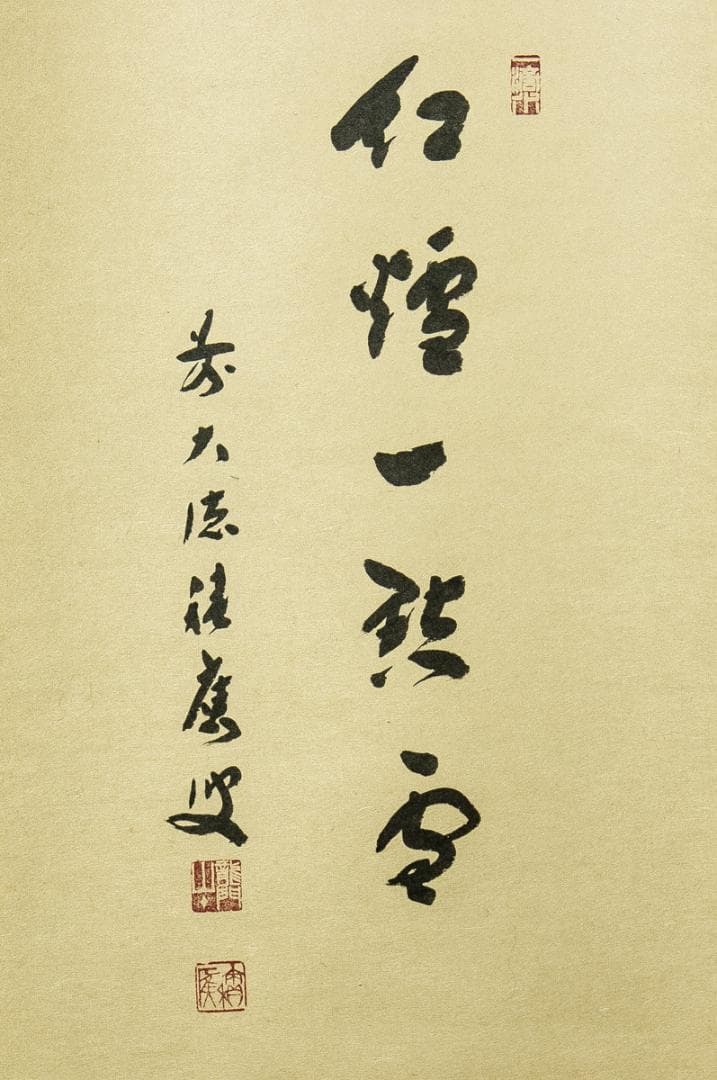 紅爐一點雪
前大徳積應叟